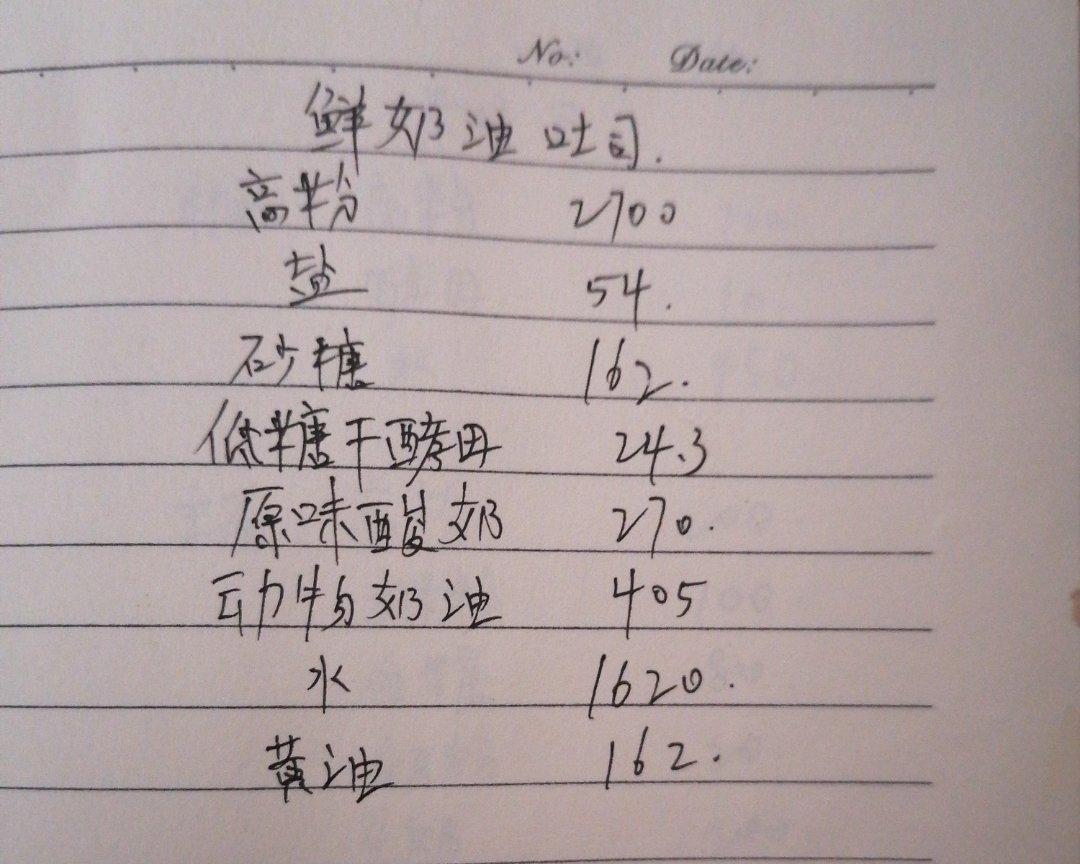 No: Date:
鲜奶油吐司.
高粉 2700
盐 54.
砂糖 162.
低糖干酵母 24.3
原味酸奶 270.
动物奶油 405
水 1620.
黄油 162.